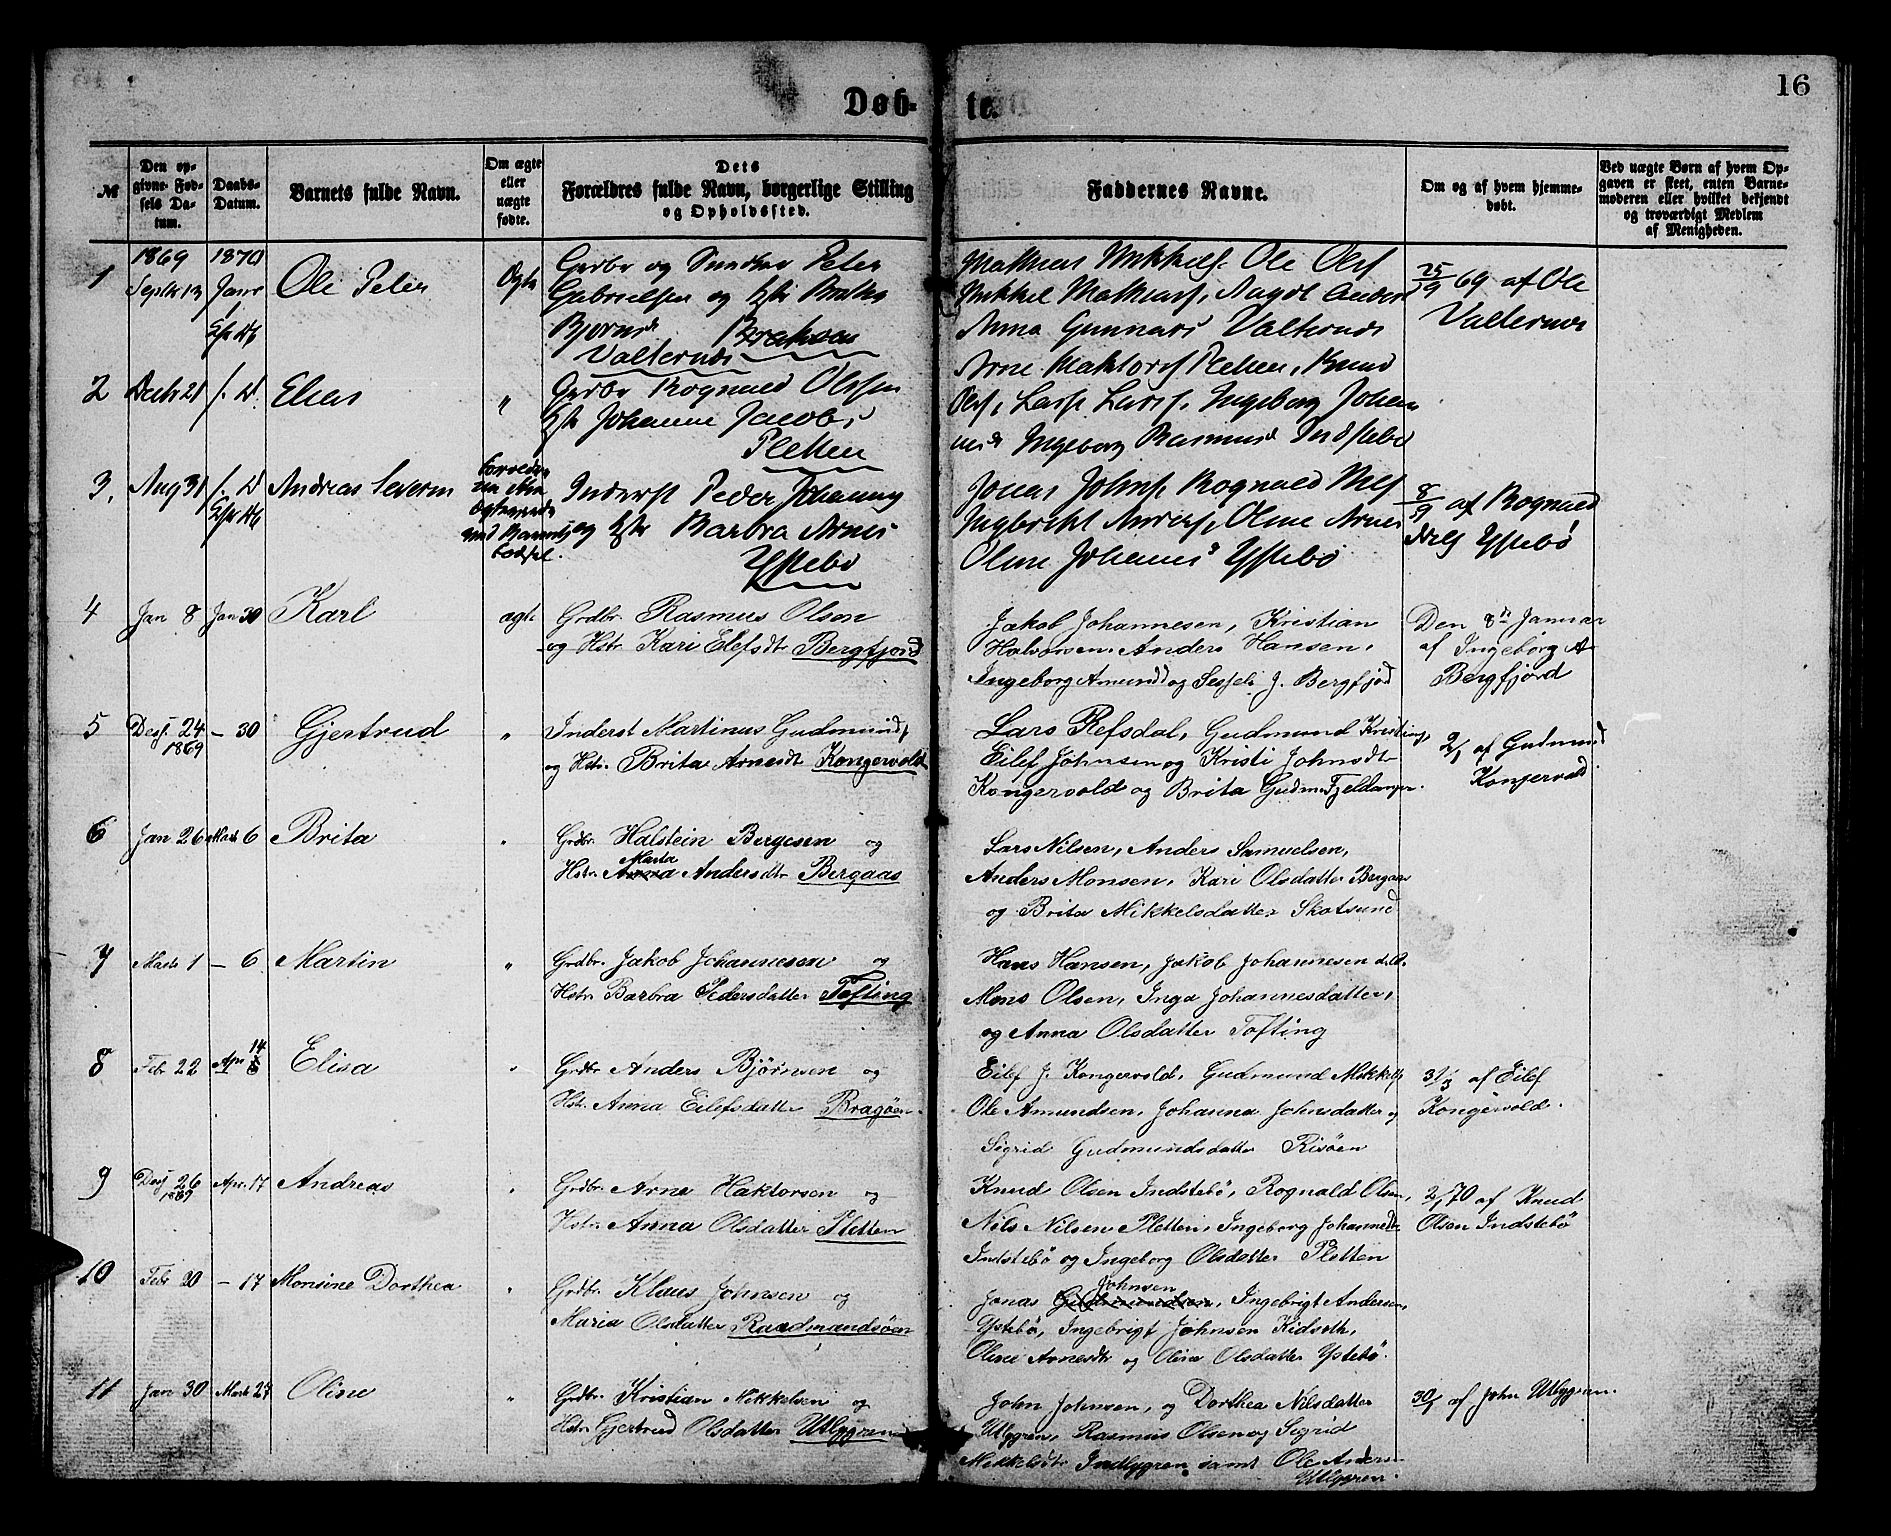 16
Døb- te.
№
Den op-
givne Fød-
sels Da-
tum.
Daabs-
Datum.
Barnets fulde Navn.
Om ægte
eller
uægte
fødte.
Dets
Forældres fulde Navn, borgerlige Stilling
og Opholdssted.
Faddernes Navne.
Om og af hvem hjemme-
døbt.
Ved uægte Børn af hvem Op-
gaven er skeet, enten Barne-
moderen eller hvilket bekjendt
og troværdigt Medlem
af Menigheden.
1869 1870
1 Septb 13 Janr Ole Peter Ægte
Grdbr og Peter
Gabrielsen og Hstr
Bjørns
Valternes
Mathias Mikkels. Ole Ols
Mikkel Mathias, Anders
Anna Gunnars Valternes
25/9 69 af Ole
Valternes
2 Decb 21 Elias "
Grdbr Rognald Olsen
Hstr Johanne Jacobs
Pletten
Arne Pletten, Knud
Ols, Lars Lars, Ingeborg Johan
Ingeborg Rasmusd Indstebø
3, Aug 31 Andreas Severin
Inderst Peder Johanns
og Hstr Barbra Arnes
Ystebø
Jonas Johns. Rognald Nils
Ingbrikt Anders, Oline Arnes
Oline Johannes Ystebø
8/9 af Rognald
Nils Ystebø
4 Jan 8 Jan 30 Karl ægte
Grdbr. Rasmus Olson
og Hstr Kari Elefsdtr Bergfjord
Jakob Johannesen, Kristian
Halvorsen. Anders Hansen,
Ingeborg Amundd og Sessele J. Bergfjod
Den 8de Januar
af Ingeborg A
Bergfjord
5 Desb. 24 1869 – 30 Gjertrud "
Inderst Martinus Gudmunds
og Hstr. Brita Arnesdt Kongervold
Lars Refsdal, Gudmund Kristians,
Eilef Johnsen og Kristi Johnsdtr
Kongervold og Brita Gudm. Fjeldanger.
2/1 af Gudmund
Kongervold
6 Jan 26 Marts 6 Brita "
Grdbr. Halstein Bergesen og
Hstr. Anna Marta Andersdtr Bergaas
Lars Nilsen, Anders Samuelsen,
Anders Monsen, Kari Olsdatter Bergaas
og Brita Mikkelsdatter Skotsund
7 Marts 1 – 6 Martin "
Grdbr. Jakob Johannesen og
Hstr Barbra Pedersdatter Tofting
Hans Hansen, Jakob Johannesen
Mons Olsen, Inga Johannesdatter,
og Anna Olsdatter Tofting
8 Febr 22 Apr 14 Elisa "
Grdbr Anders Bjørnsen og
Hstr. Anna Eilefsdatter Bragøen.
Eilef J. Kongervold, Gudmund Mikkels
Ole Amundsen, Johanna Johnsdatter og
Sigrid Gudmundsdatter Risøen
31/3 af Eilef
Kongervold.
9 Desb 26 1869 Apr. 17 Andreas "
Grdbr. Arne Haktorsen og
Hstr. Anna Olsdatter Pletten
Knud Olsen Indstebø, Rognald Olsen,
Nils Nilsen Pletten, Ingeborg Johannesdtr
Indstebø og Ingeborg Olsdatter Pletten
2/1 70 af Knud
Olsen Indstebø
10 Febr 20 – 17 Monsine Dorthea "
Grdbr. Klaus Johnsen og
Maria Olsdatter Raadmandsøen
Jonas Gudmundsen Johnsen, Ingebrigt Andersen,
Ystebø, Ingebrigt Johnsen Kidseth,
Oline Arnesdtr og Olina Olsdatter Ystebø.
11 Jan 30 Marts 27 Oline "
Grdbr. Kristian Mikkelsen og
Hstr Gjertrud Olsdatter Utlyggren
John Johnsen, og Dorthea Nilsdatter
Utlyggren, Rasmus Olsen og Sigrid
Mikkelsdtr Indlyggren, samt Ole Anders
Utlyggren.
30/1 af John Utlyggren.